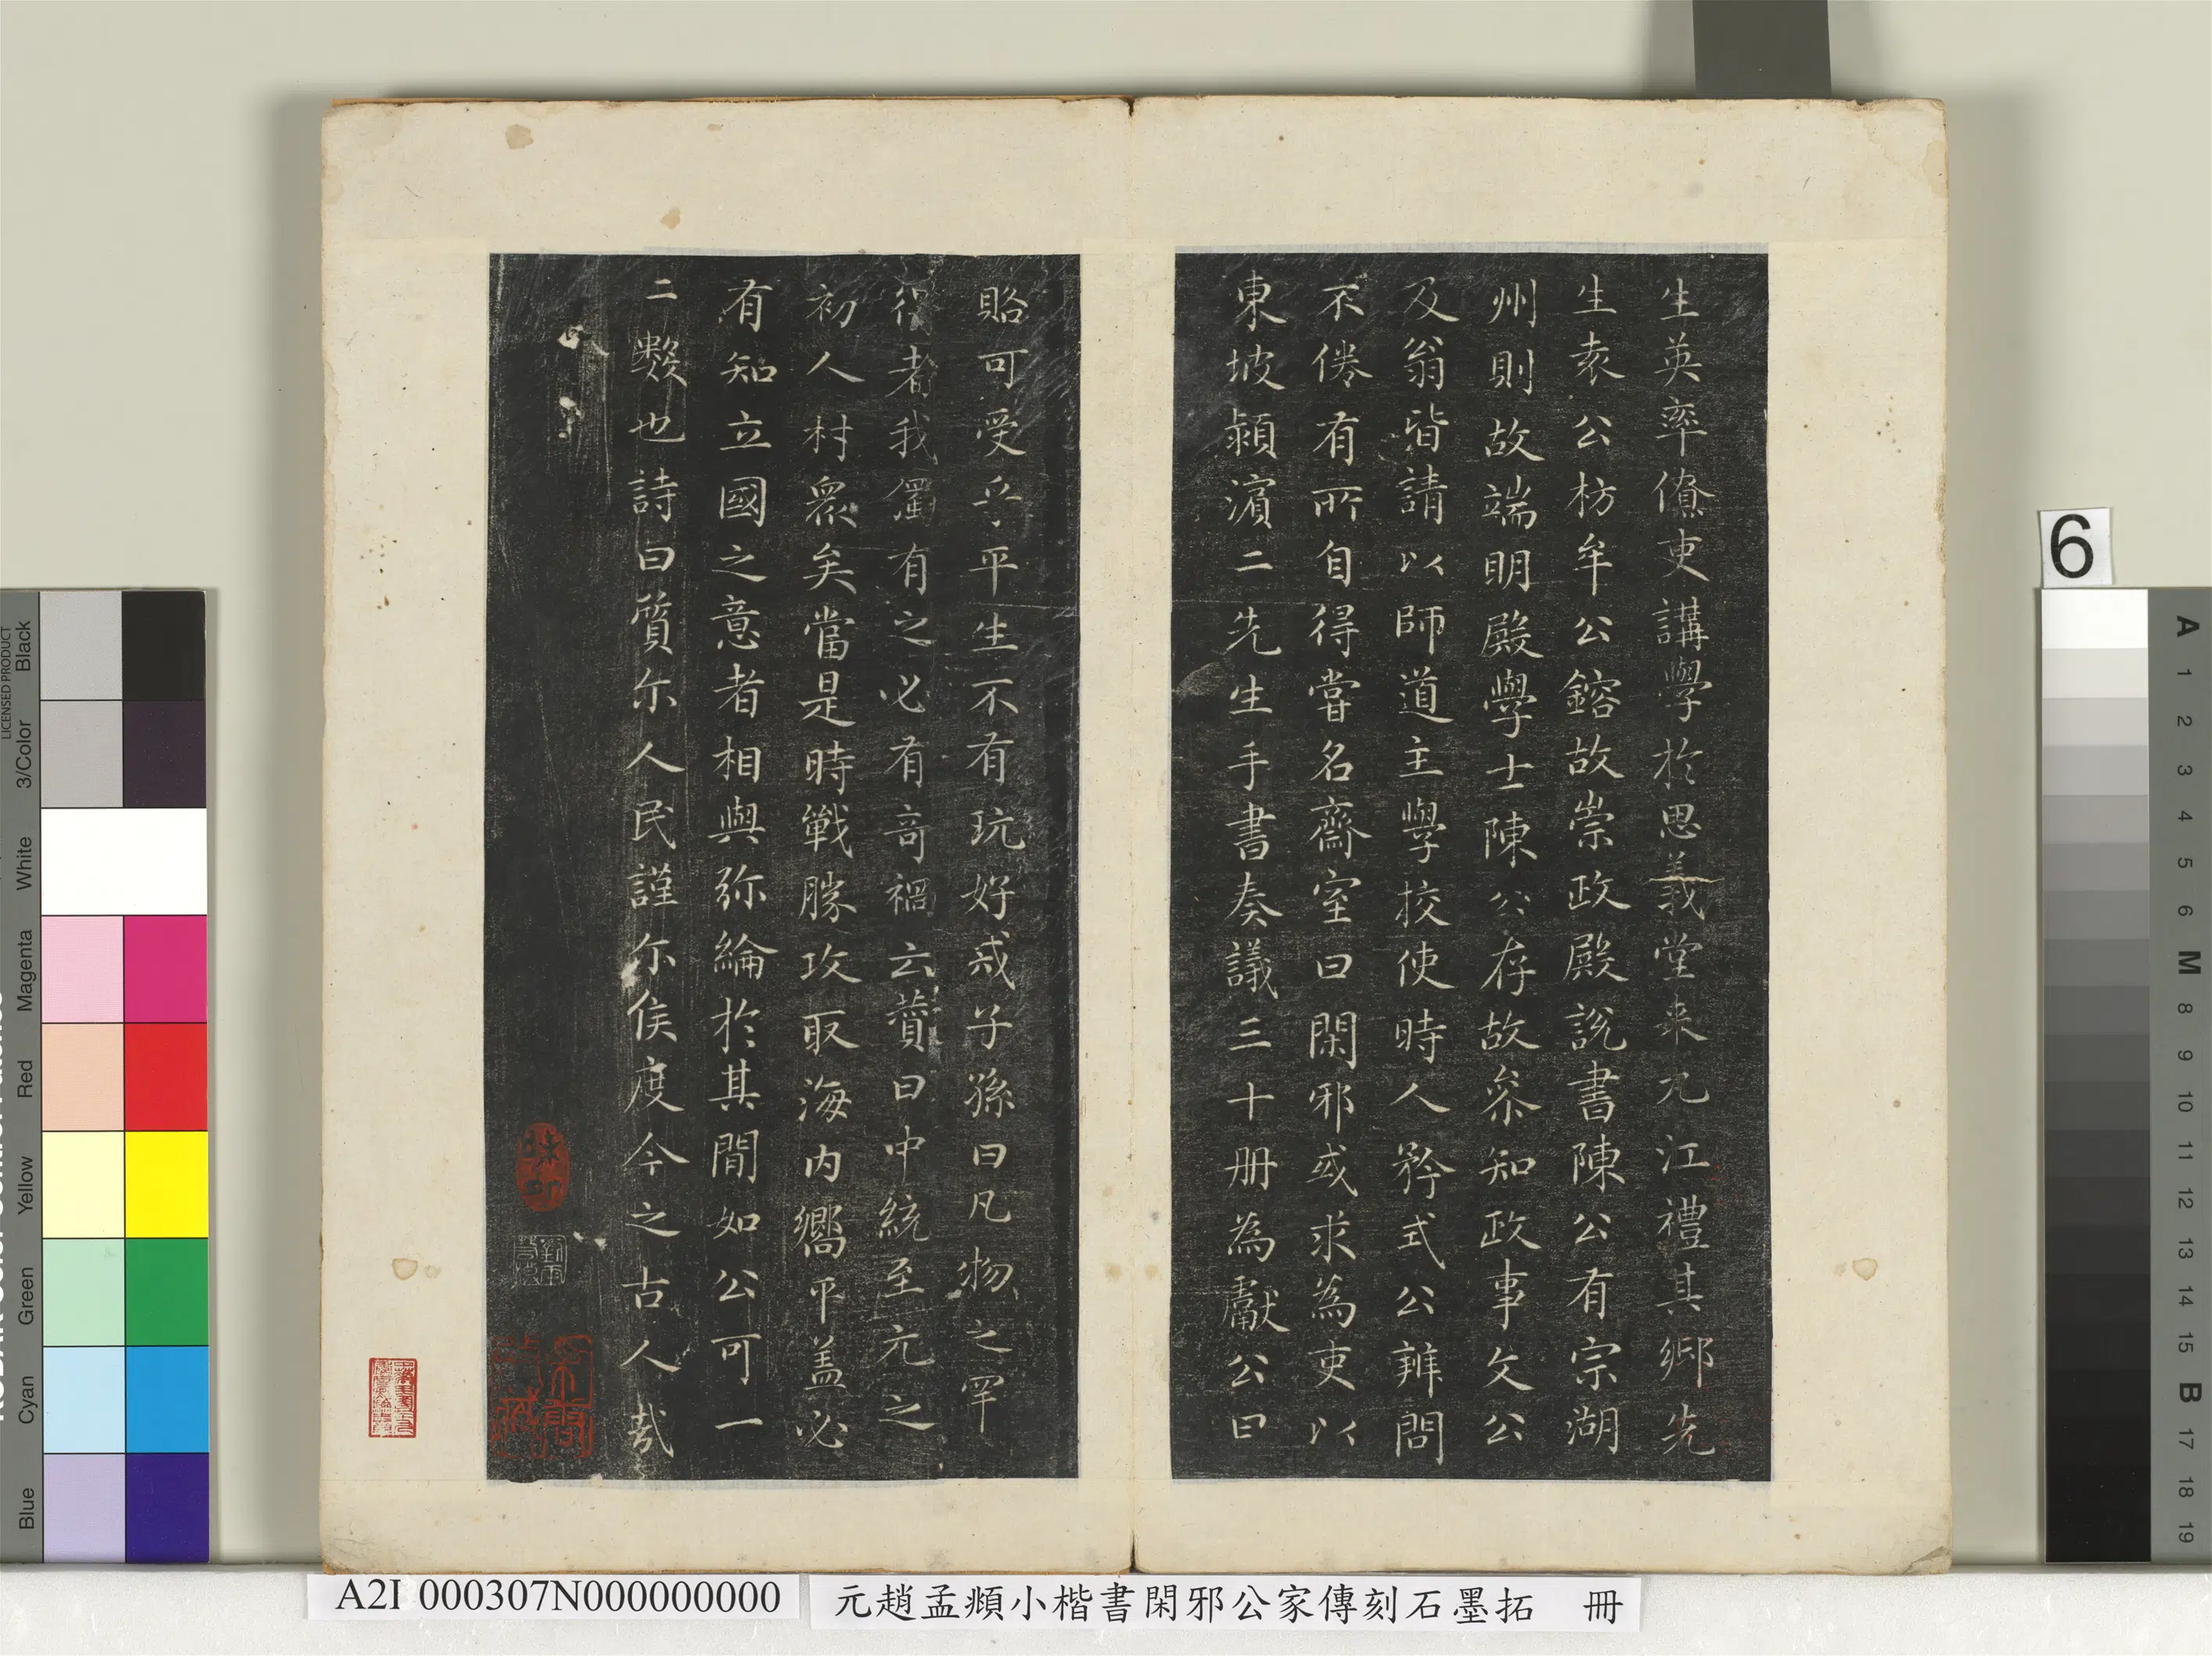 生英率僚吏講學於思義堂来九江禮其鄉先
生袁公枋牟公鎔故崇政殿說書陳公有宗湖
州則故端明殿學士陳公存故叅知政事文公
及翁皆請以師道主學校使時人矜式公辨問
不倦有所自得嘗名齋室曰閑邪或求為吏以
東坡潁濱二先生手書奏議三十册為獻公曰
賂可受乎平生不有玩好戒子孫曰凡物之罕
得者我獨有之必有奇禍云贊曰中統至元之
初人材衆矣當是時戰勝攻取海内嚮平盖必
有知立國之意者相與弥綸於其間如公可一
二數也詩曰質尔人民謹尔侯度今之古人哉
元趙孟頫小楷書閑邪公家傳刻石墨拓 冊
A2I 000307N000000000
6
A 1 2 3 4 5 6 M 8 9 10 11 12 13 14 15 B 17 18 19
LICENSED PRODUCT
Black
3/Color
White
Magenta
Red
Yellow
Green
Cyan
Blue